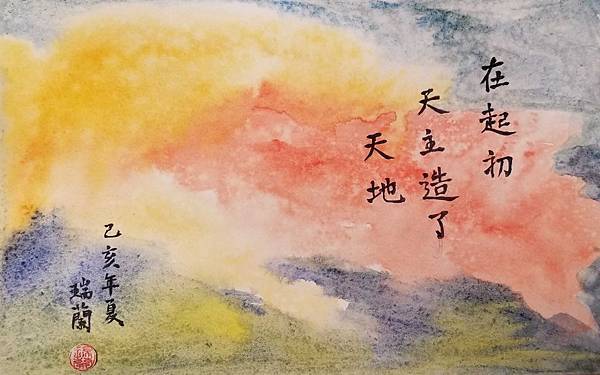 在起初
天主造了
天地
己亥年夏
瑞蘭